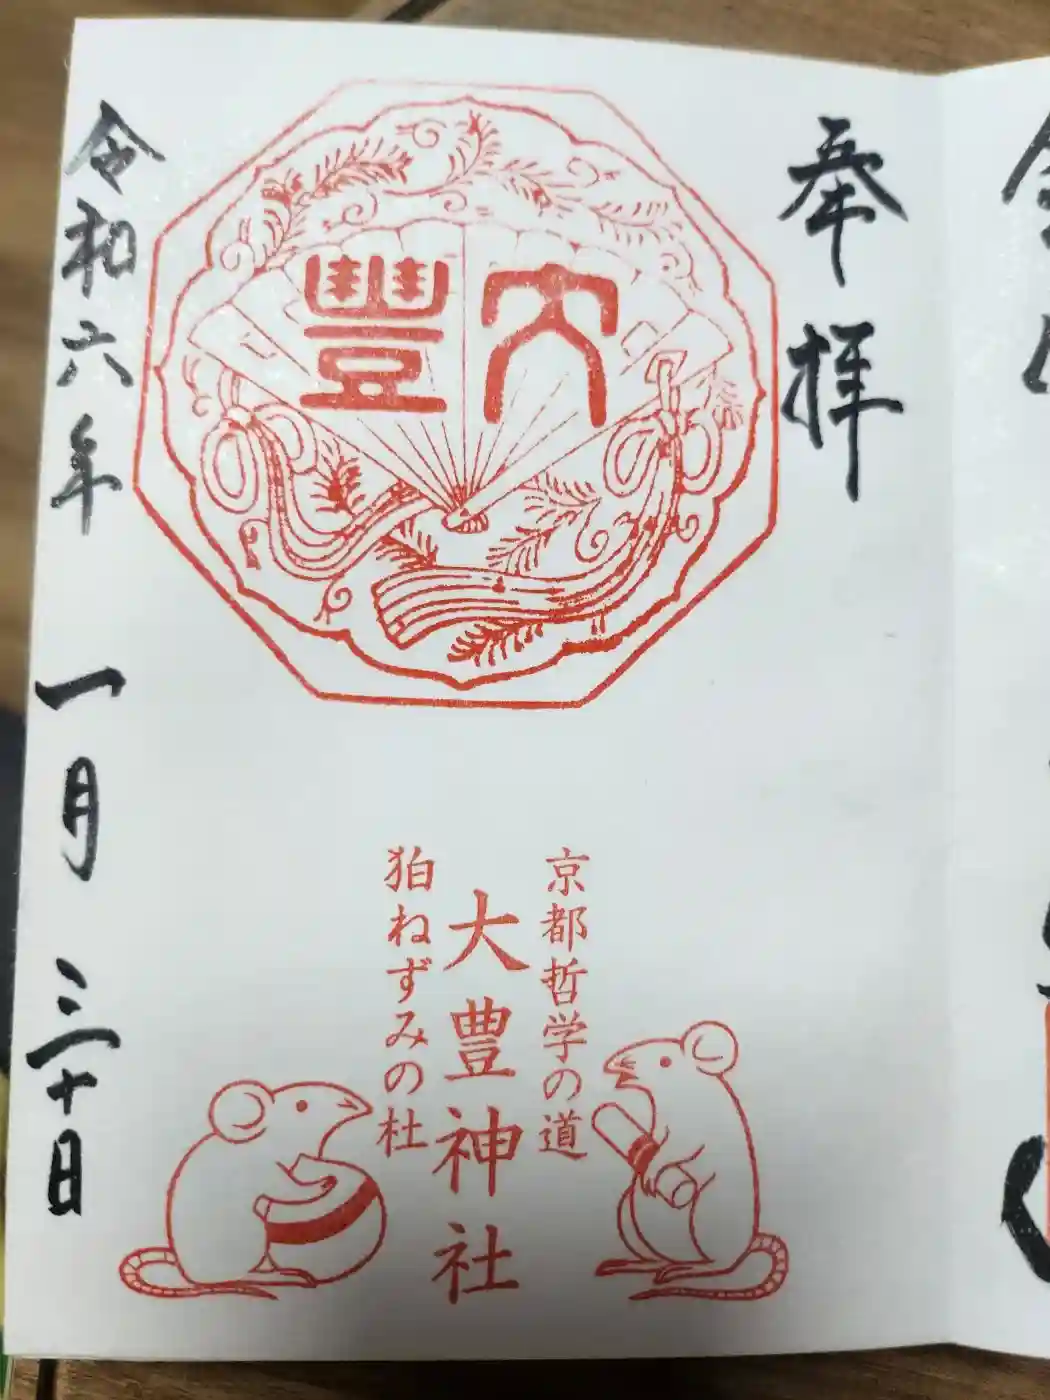 奉拝
大豊
京都哲学の道
大豊神社
狛ねずみの杜
令和六年 一月 三十日